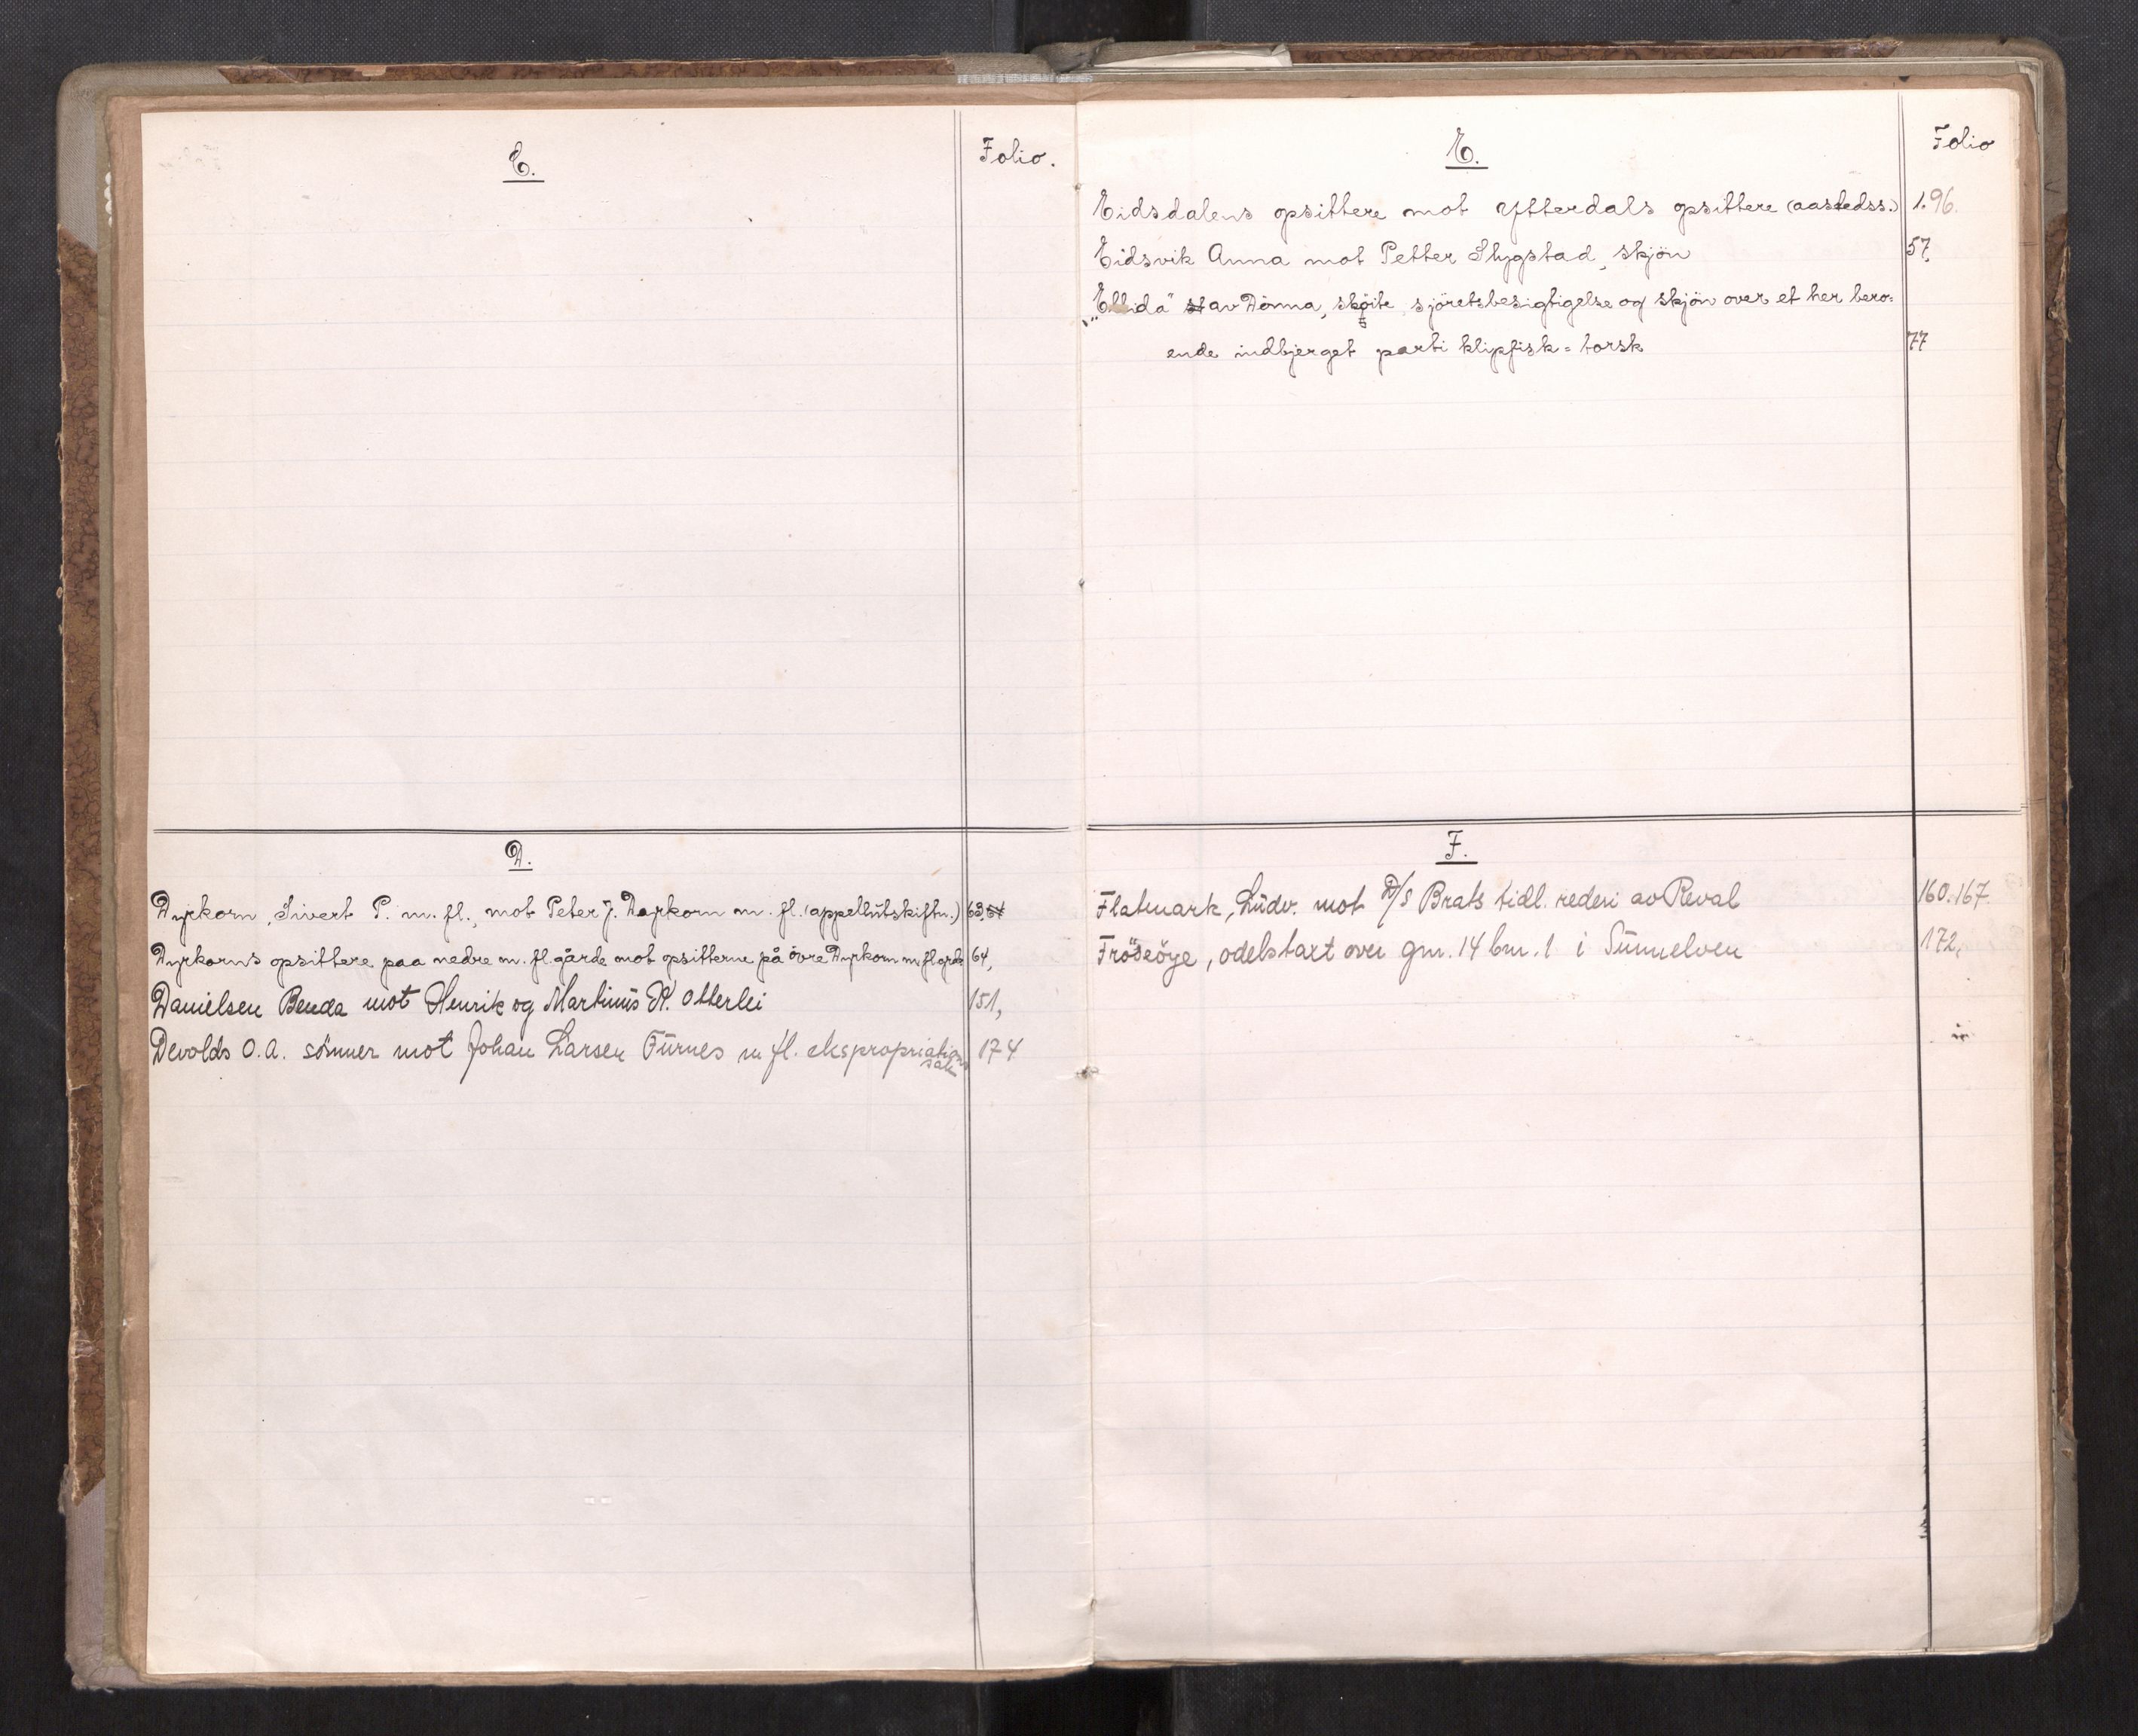 C.
Folio.
D.
Dyrkorn, Sivert P. m. fl., mot Peter J. Dyrkorn m. fl. (appellutskiftn.) 63, 64
Dyrkorns opsittere paa nedre m. fl. gårde mot opsitterne på övre Dyrkorn m. fl. grde 64,
Danielsen Benda mot Henrik og Martinüs K. Otterlei 151,
Devolds O. A. sönner mot Johan Larsen Fürnes m fl. ekspropriations
sak 174
E.
Folio
Eidsdalens opsittere mot Ytterdals opsittere (aastedss.) 1. 96.
Eidsvik Anna mot Petter Slygstad, skjön 57,
„Ellida" st av Dönna, sköite, sjöretsbesigtigelse og skjön over et her bero=
ende indbjerget parti klipfisk = torsk 77
F.
Flatmark, Lüdv. mot D/S Brats tidl. rederi av Reval 160. 167.
Fröseöye, odelstaxt over gnr. 14 bnr. 1 i Sünnelven 172,